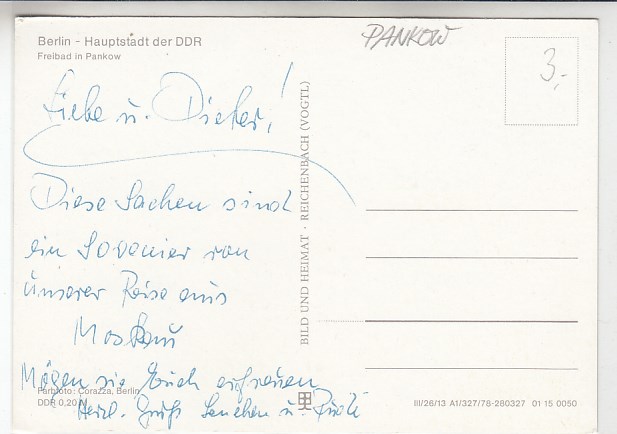 Berlin - Hauptstadt der DDR
Freibad in Pankow
PANKOW
3,-
Liebe u. Dieter!
Diese Sachen sind
ein Sovenier von
unserer Reise aus
Moskau
Mögen sie Euch erfreuen
Herzl. Gruß u.
Farbfoto: Corazza, Berlin
DDR 0,20
BILD UND HEIMAT · REICHENBACH (VOGTL)
III/26/13 A1/327/78-280327 01 15 0050